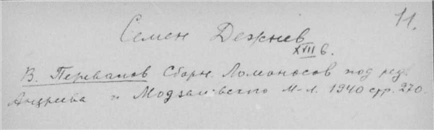 11.
Семен Дежнев
XVII в.
В. Перевалов Сборн. Ломоносов под ред.
Андреева и Модзалевского М-Л. 1940 стр. 270.